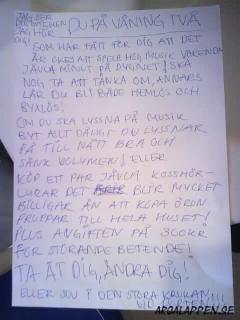 JAG SER
DIG VARKEN
JAG HÖR
DIG!
DU PÅ VÅNING TVÅ
SOM HAR FÅTT FÖR DIG ATT DET
ÄR OKEJ ATT SPELA HÖG MUSIK VARENDA
JÄVLA MINUT PÅ DYGNET! SKA
NOG TA ATT TÄNKA OM, ANNARS
LÄR DU BLI BÅDE HEMLÖS OCH
BYXLÖS!
OM DU SKA LYSSNA PÅ MUSIK
BYT ALLT DÅLIGT DU LYSSNAR
PÅ TILL NÅTT BRA OCH
SÄNK VOLYMEN! ELLER
KÖP ETT PAR JÄVLA KOSSHÖR-
LURAR DET BLIR MYCKET
BILLIGAR ÄN ATT KÖPA ÖRON
PROPPAR TILL HELA HUSET!
PLUS AVGIFTEN PÅ 300KR
FÖR STÖRANDE BETENDE!
TA ÅT DIG, ÄNDRA DIG!
ELLER SOV I DEN STORA KRUKAN
VID PORTEN!!!
ARGALAPPEN.SE